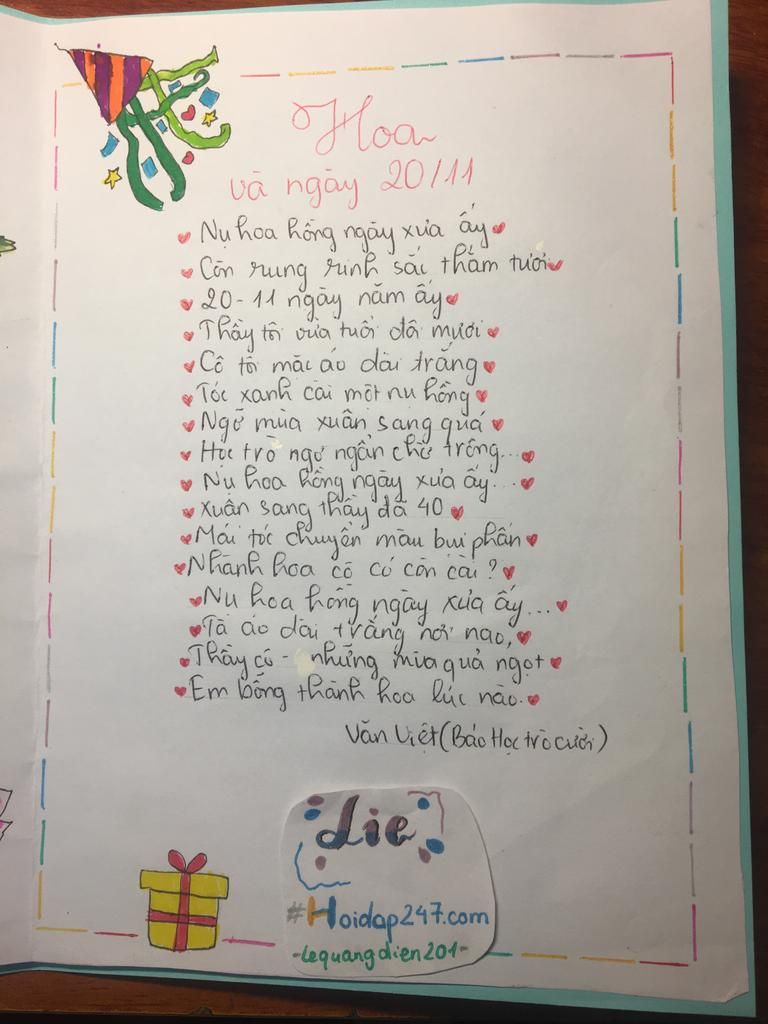 Hoa
và ngày 20/11
Nụ hoa hồng ngày xưa ấy
Còn rung rinh sắc thắm tươi
20-11 ngày năm ấy
Thầy tôi vừa tuổi đôi mươi
Cô tôi mặc áo dài trắng
Tóc xanh cài một nụ hồng
Ngỡ mùa xuân sang quá
Học trò ngơ ngẩn chờ trông...
Nụ hoa hồng ngày xưa ấy...
Xuân sang thầy đã 40
Mái tóc chuyển màu bụi phấn
Nhành hoa cô có còn cài?
Nụ hoa hồng ngày xưa ấy...
Tà áo dài trắng nơi nao,
Thầy cô - những mùa quả ngọt
Em bỗng thành hoa lúc nào.
Văn Việt (Báo Học trò cười)
Lie
#Hoidap247.com
-lequangdien201-